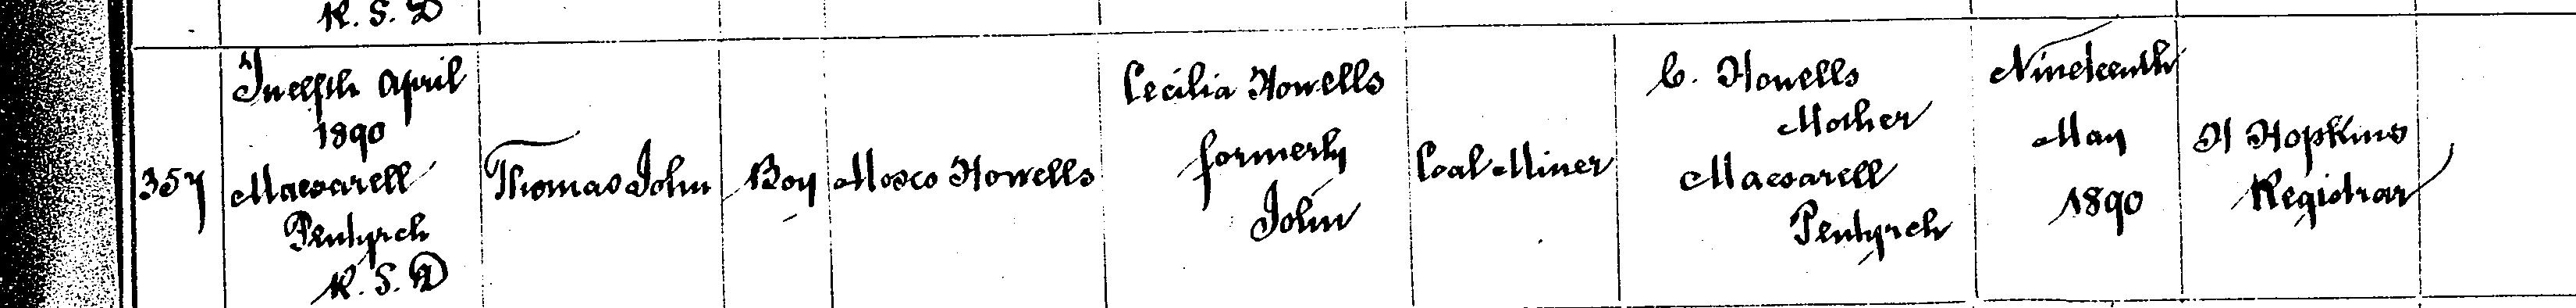 R. S. D
357
Twelfth April
1890
Maesarell
Pentyrch
R. S. D
Thomas John
Boy
Moses Howells
Cecilia Howells
formerly
John
Coal Miner
C. Howells
Mother
Maesarell
Pentyrch
Nineteenth
May
1890
H Hopkins
Registrar